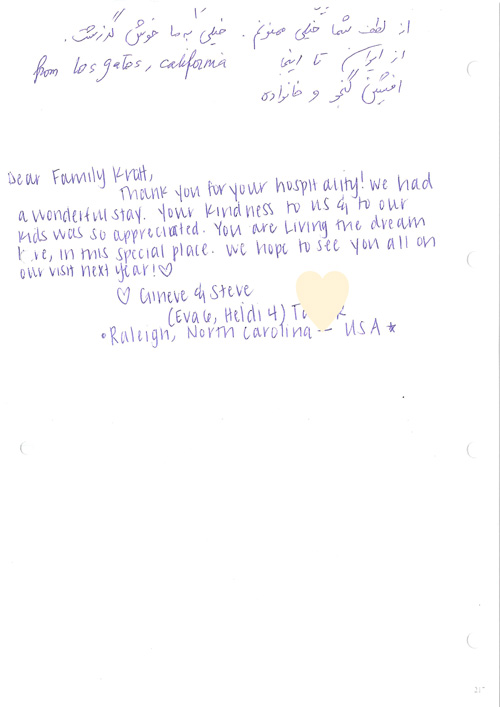 از لطف شما خیلی ممنونم. خیلی به ما خوش گذشت.
از ایران تا اینجا from Los gatos, california
افشین گنجو و خانواده
Dear Family Kratt,
Thank you for your hospitality! We had
a wonderful stay. Your kindness to us & to our
kids was so appreciated. You are Living the dream
in this special place. We hope to see you all on
our visit next year! ♡
♡ Gineve & Steve
(Eva 6, Heidi 4)
• Raleigh, North Carolina - USA *
217